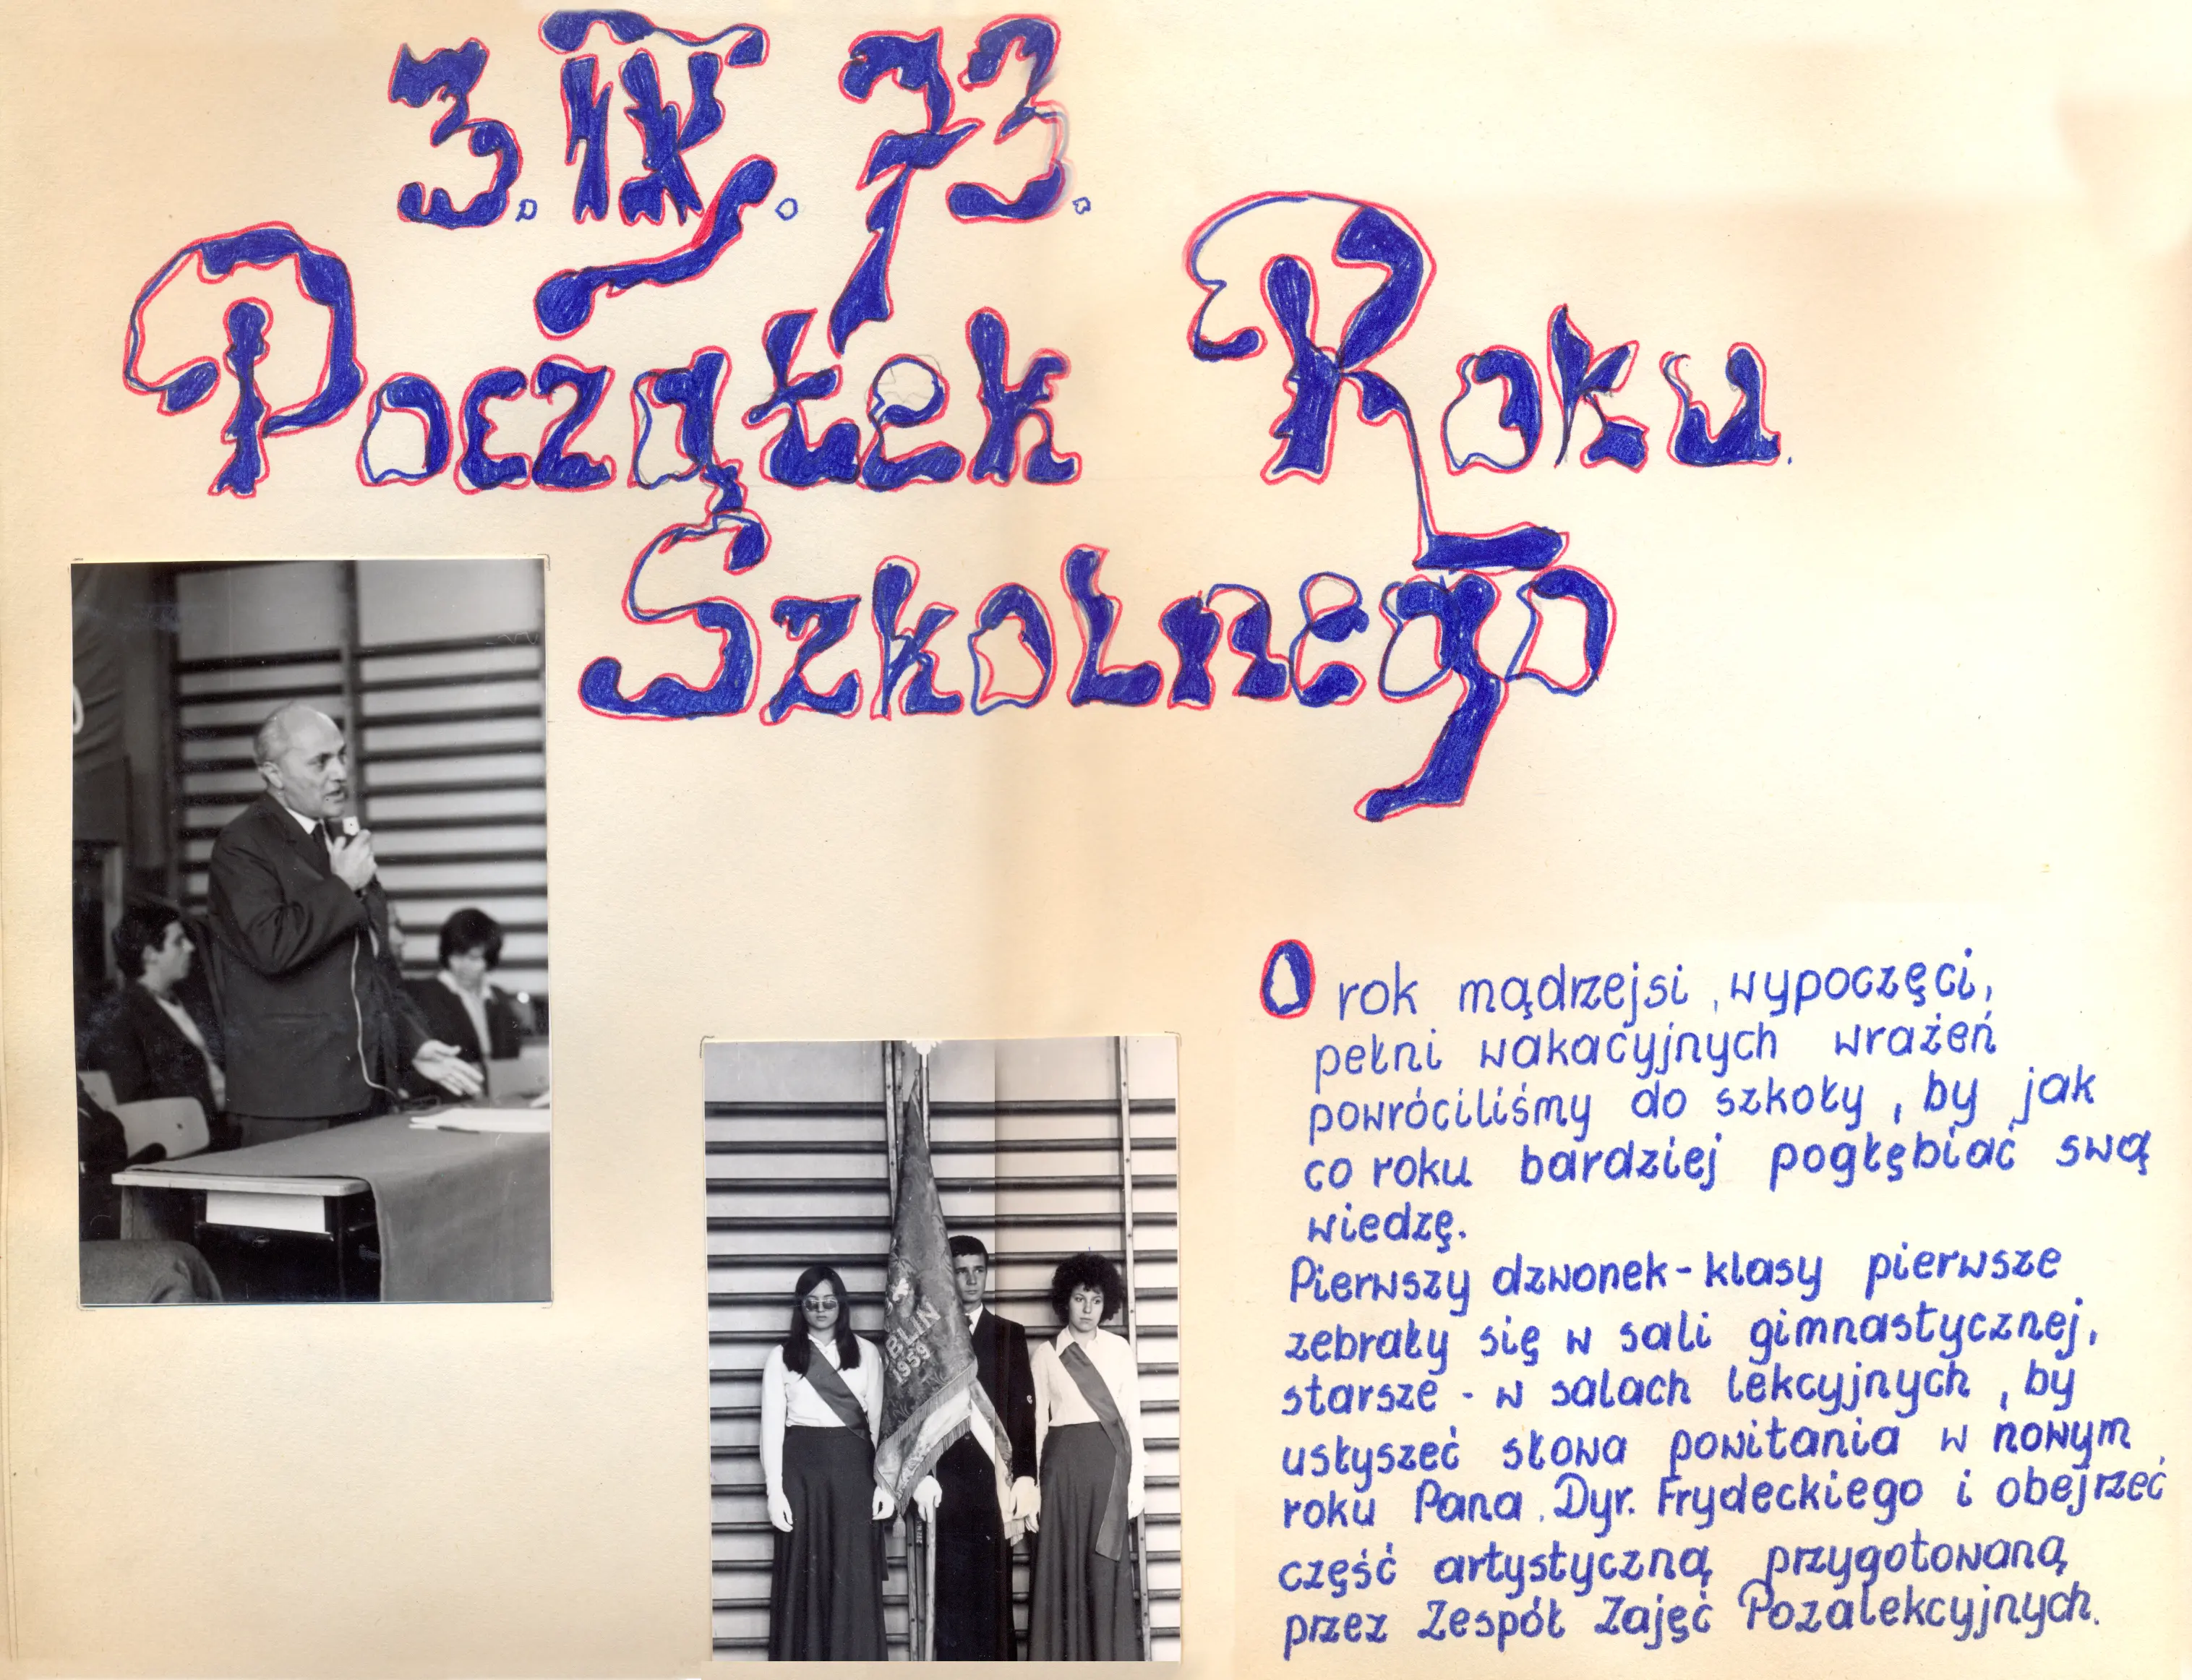 3. IX. 73.
Początek Roku.
Szkolnego
O rok mądrzejsi, wypoczęci,
pełni wakacyjnych wrażeń
powróciliśmy do szkoły, by jak
co roku bardziej pogłębiać swą
wiedzę.
Pierwszy dzwonek - klasy pierwsze
zebrały się w sali gimnastycznej,
starsze - w salach lekcyjnych, by
usłyszeć słowa powitania w nowym
roku Pana. Dyr. Frydeckiego i obejrzeć
część artystyczną przygotowaną
przez Zespół Zajęć Pozalekcyjnych.
BLIN
1959